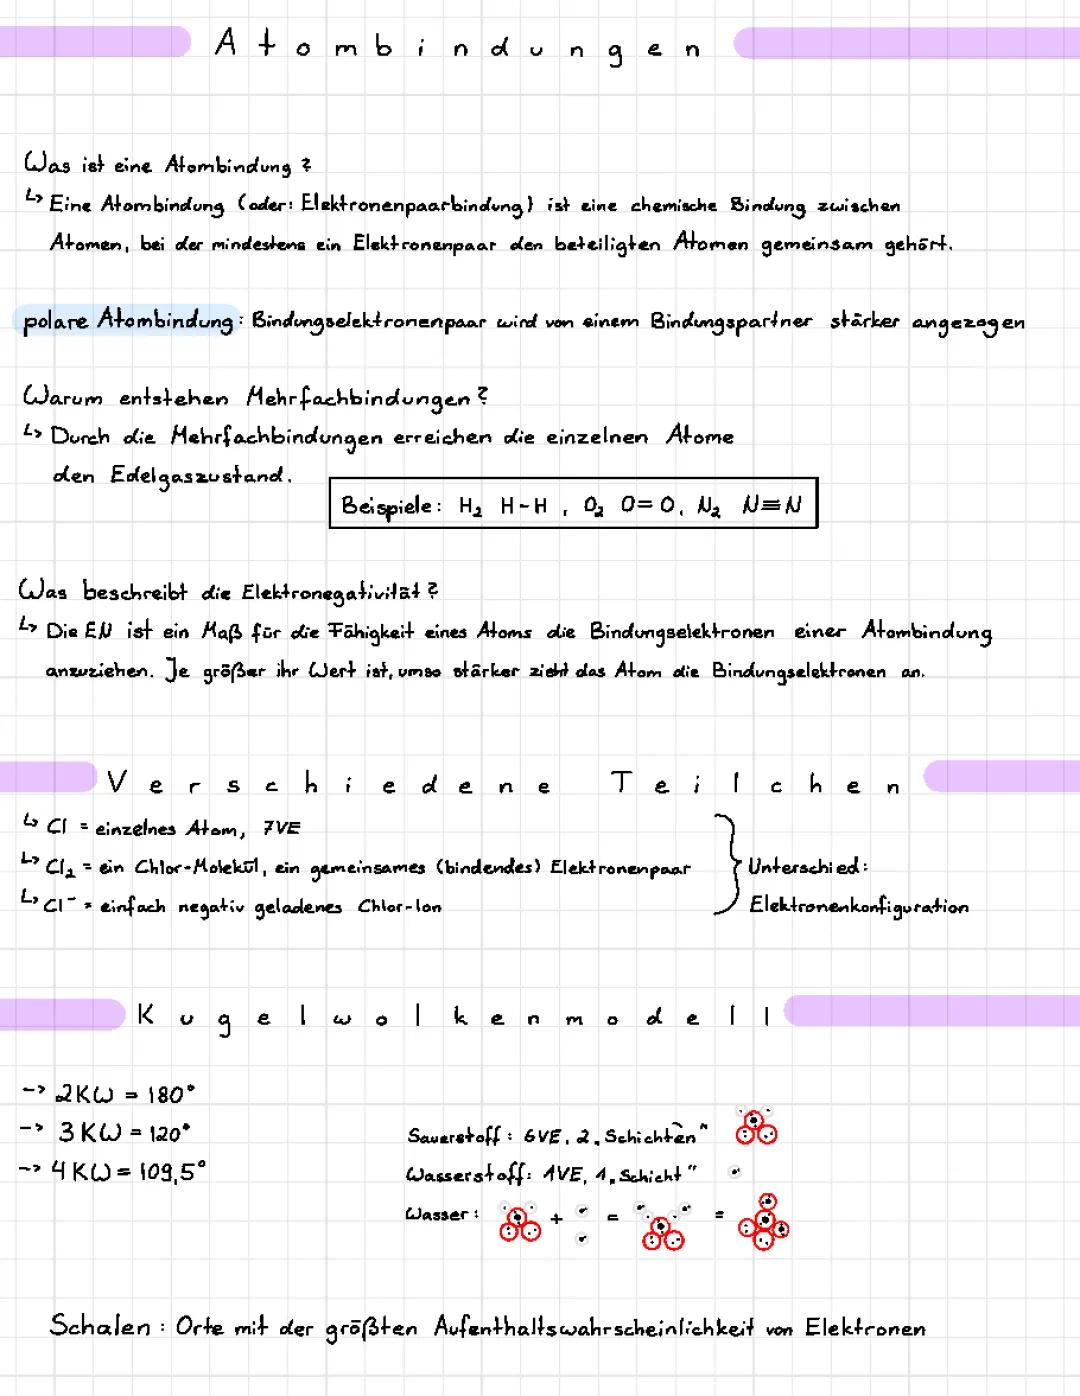 Atombindungen
Was ist eine Atombindung?
↳ Eine Atombindung (oder: Elektronenpaarbindung) ist eine chemische Bindung zwischen
Atomen, bei der mindestens ein Elektronenpaar den beteiligten Atomen gemeinsam gehört.
polare Atombindung: Bindungselektronenpaar wird von einem Bindungspartner stärker angezogen
Warum entstehen Mehrfachbindungen?
↳ Durch die Mehrfachbindungen erreichen die einzelnen Atome
den Edelgaszustand.
Beispiele: H₂ H-H, O₂ O=O, N₂ N≡N
Was beschreibt die Elektronegativität?
↳ Die EN ist ein Maß für die Fähigkeit eines Atoms die Bindungselektronen einer Atombindung
anzuziehen. Je größer ihr Wert ist, umso stärker zieht das Atom die Bindungselektronen an.
Verschiedene Teilchen
↳ Cl = einzelnes Atom, 7VE
↳ Cl₂ = ein Chlor-Molekül, ein gemeinsames (bindendes) Elektronenpaar
↳ Cl⁻ = einfach negativ geladenes Chlor-Ion
Unterschied:
Elektronenkonfiguration
Kugelwolkenmodell
-> 2KW = 180°
-> 3KW = 120°
-> 4KW = 109,5°
Sauerstoff: 6VE, 2 „Schichten"
Wasserstoff: 1VE, 1 „Schicht"
Wasser: + = =
Schalen: Orte mit der größten Aufenthaltswahrscheinlichkeit von Elektronen